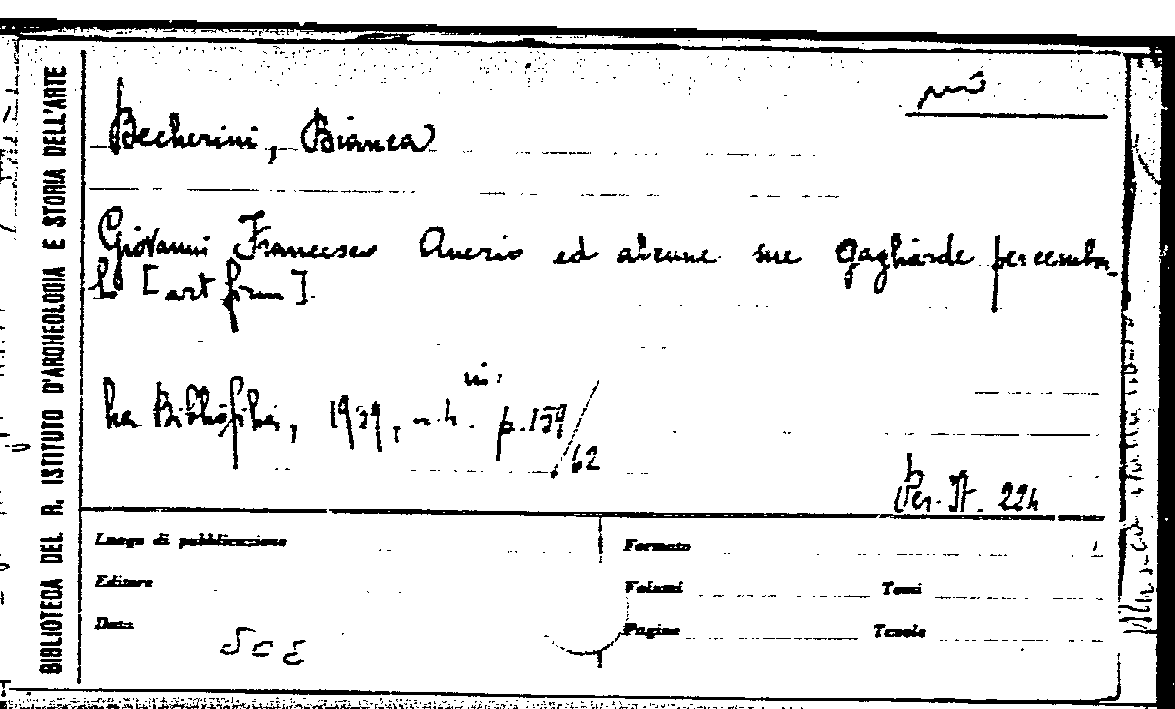 BIBLIOTECA DEL R. ISTITUTO D'ARCHEOLOGIA E STORIA DELL'ARTE
Becherini, Bianca
Giovanni Francesco Anerio ed alcune sue gagliarde per cemba-
lo [art firm].
La Bibliofilia, 1939, n. 4. p. 159/62
Per. It. 224
Luogo di pubblicazione
Formato
Editore
Volumi Tomi
Data
Pagine Tavole